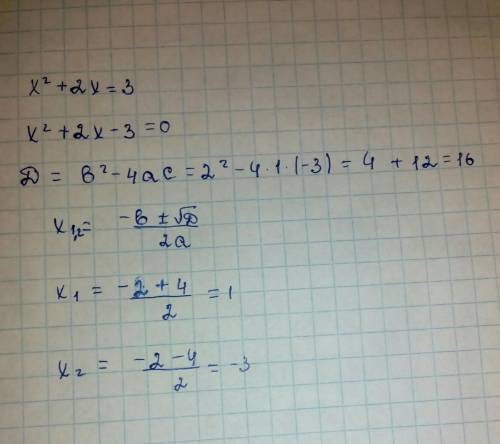 x² + 2x = 3
x² + 2x - 3 = 0
D = в² - 4ac = 2² - 4·1·(-3) = 4 + 12 = 16
x₁,₂ = (-в ± √D)/(2a)
x₁ = (-2 + 4)/2 = 1
x₂ = (-2 - 4)/2 = -3